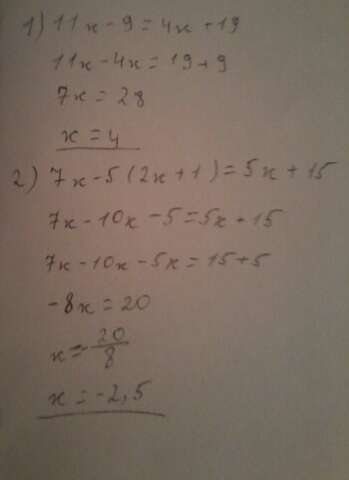 1) 11x-9=4x+19
11x-4x=19+9
7x=28
x=4
2) 7x-5(2x+1)=5x+15
7x-10x-5=5x+15
7x-10x-5x=15+5
-8x=20
x=-20/8
x=-2,5